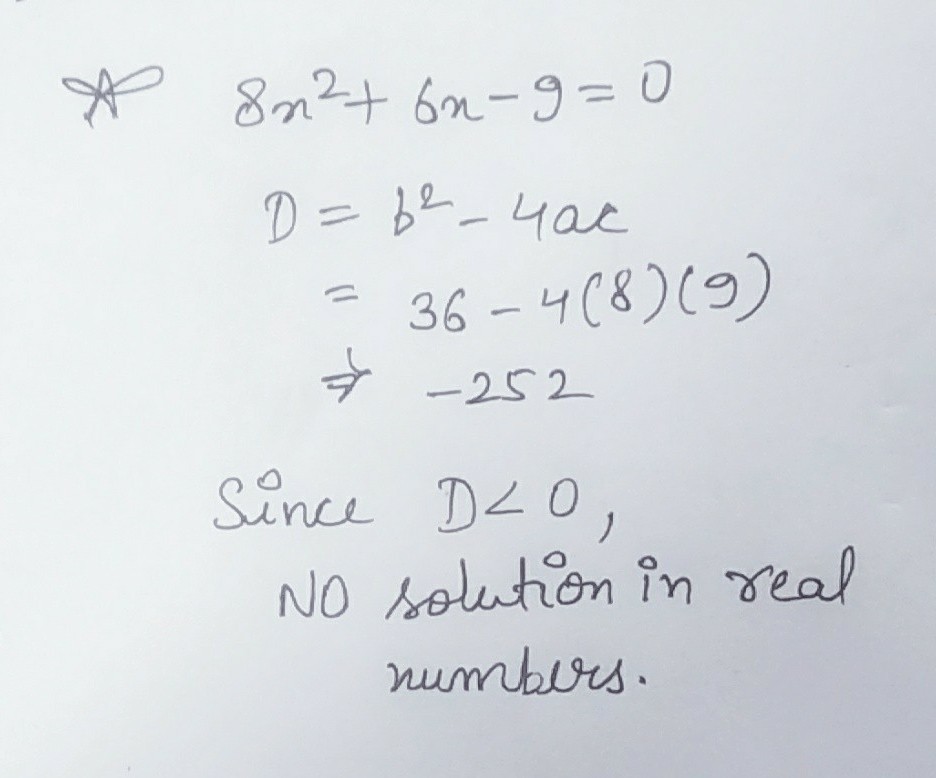 8n²+ 6n-9=0
D = b²-4ac
= 36-4(8)(9)
⇒ -252
Since D<0,
NO solution in real
numbers.